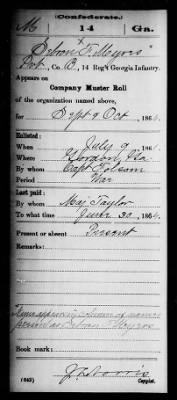 (Confederate.)
M 14 Ga.
Sebron F. Meyers
Pvt., Co. B, 14 Reg't Georgia Infantry.
Appears on
Company Muster Roll
of the organization named above,
for Sept & Oct, 1864.
Enlisted:
When July 9, 1861.
Where Gordon, Ga
By whom Capt Folsom
Period War
Last paid:
By whom Maj Taylor
To what time June 30, 1864.
Present or absent Present
Remarks:
Name appears in column of names
present as
Book mark:
J. P. Norris
(642) Copyist.